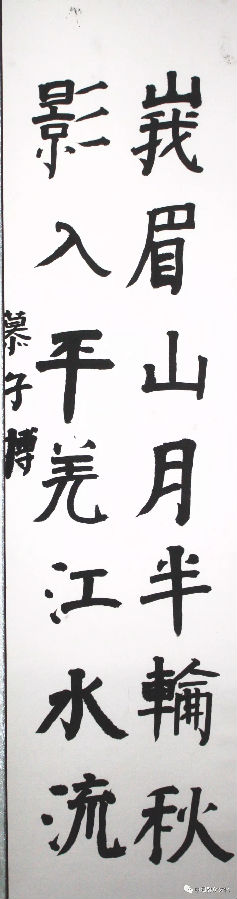 峩眉山月半輪秋
影入平羌江水流
慕子博